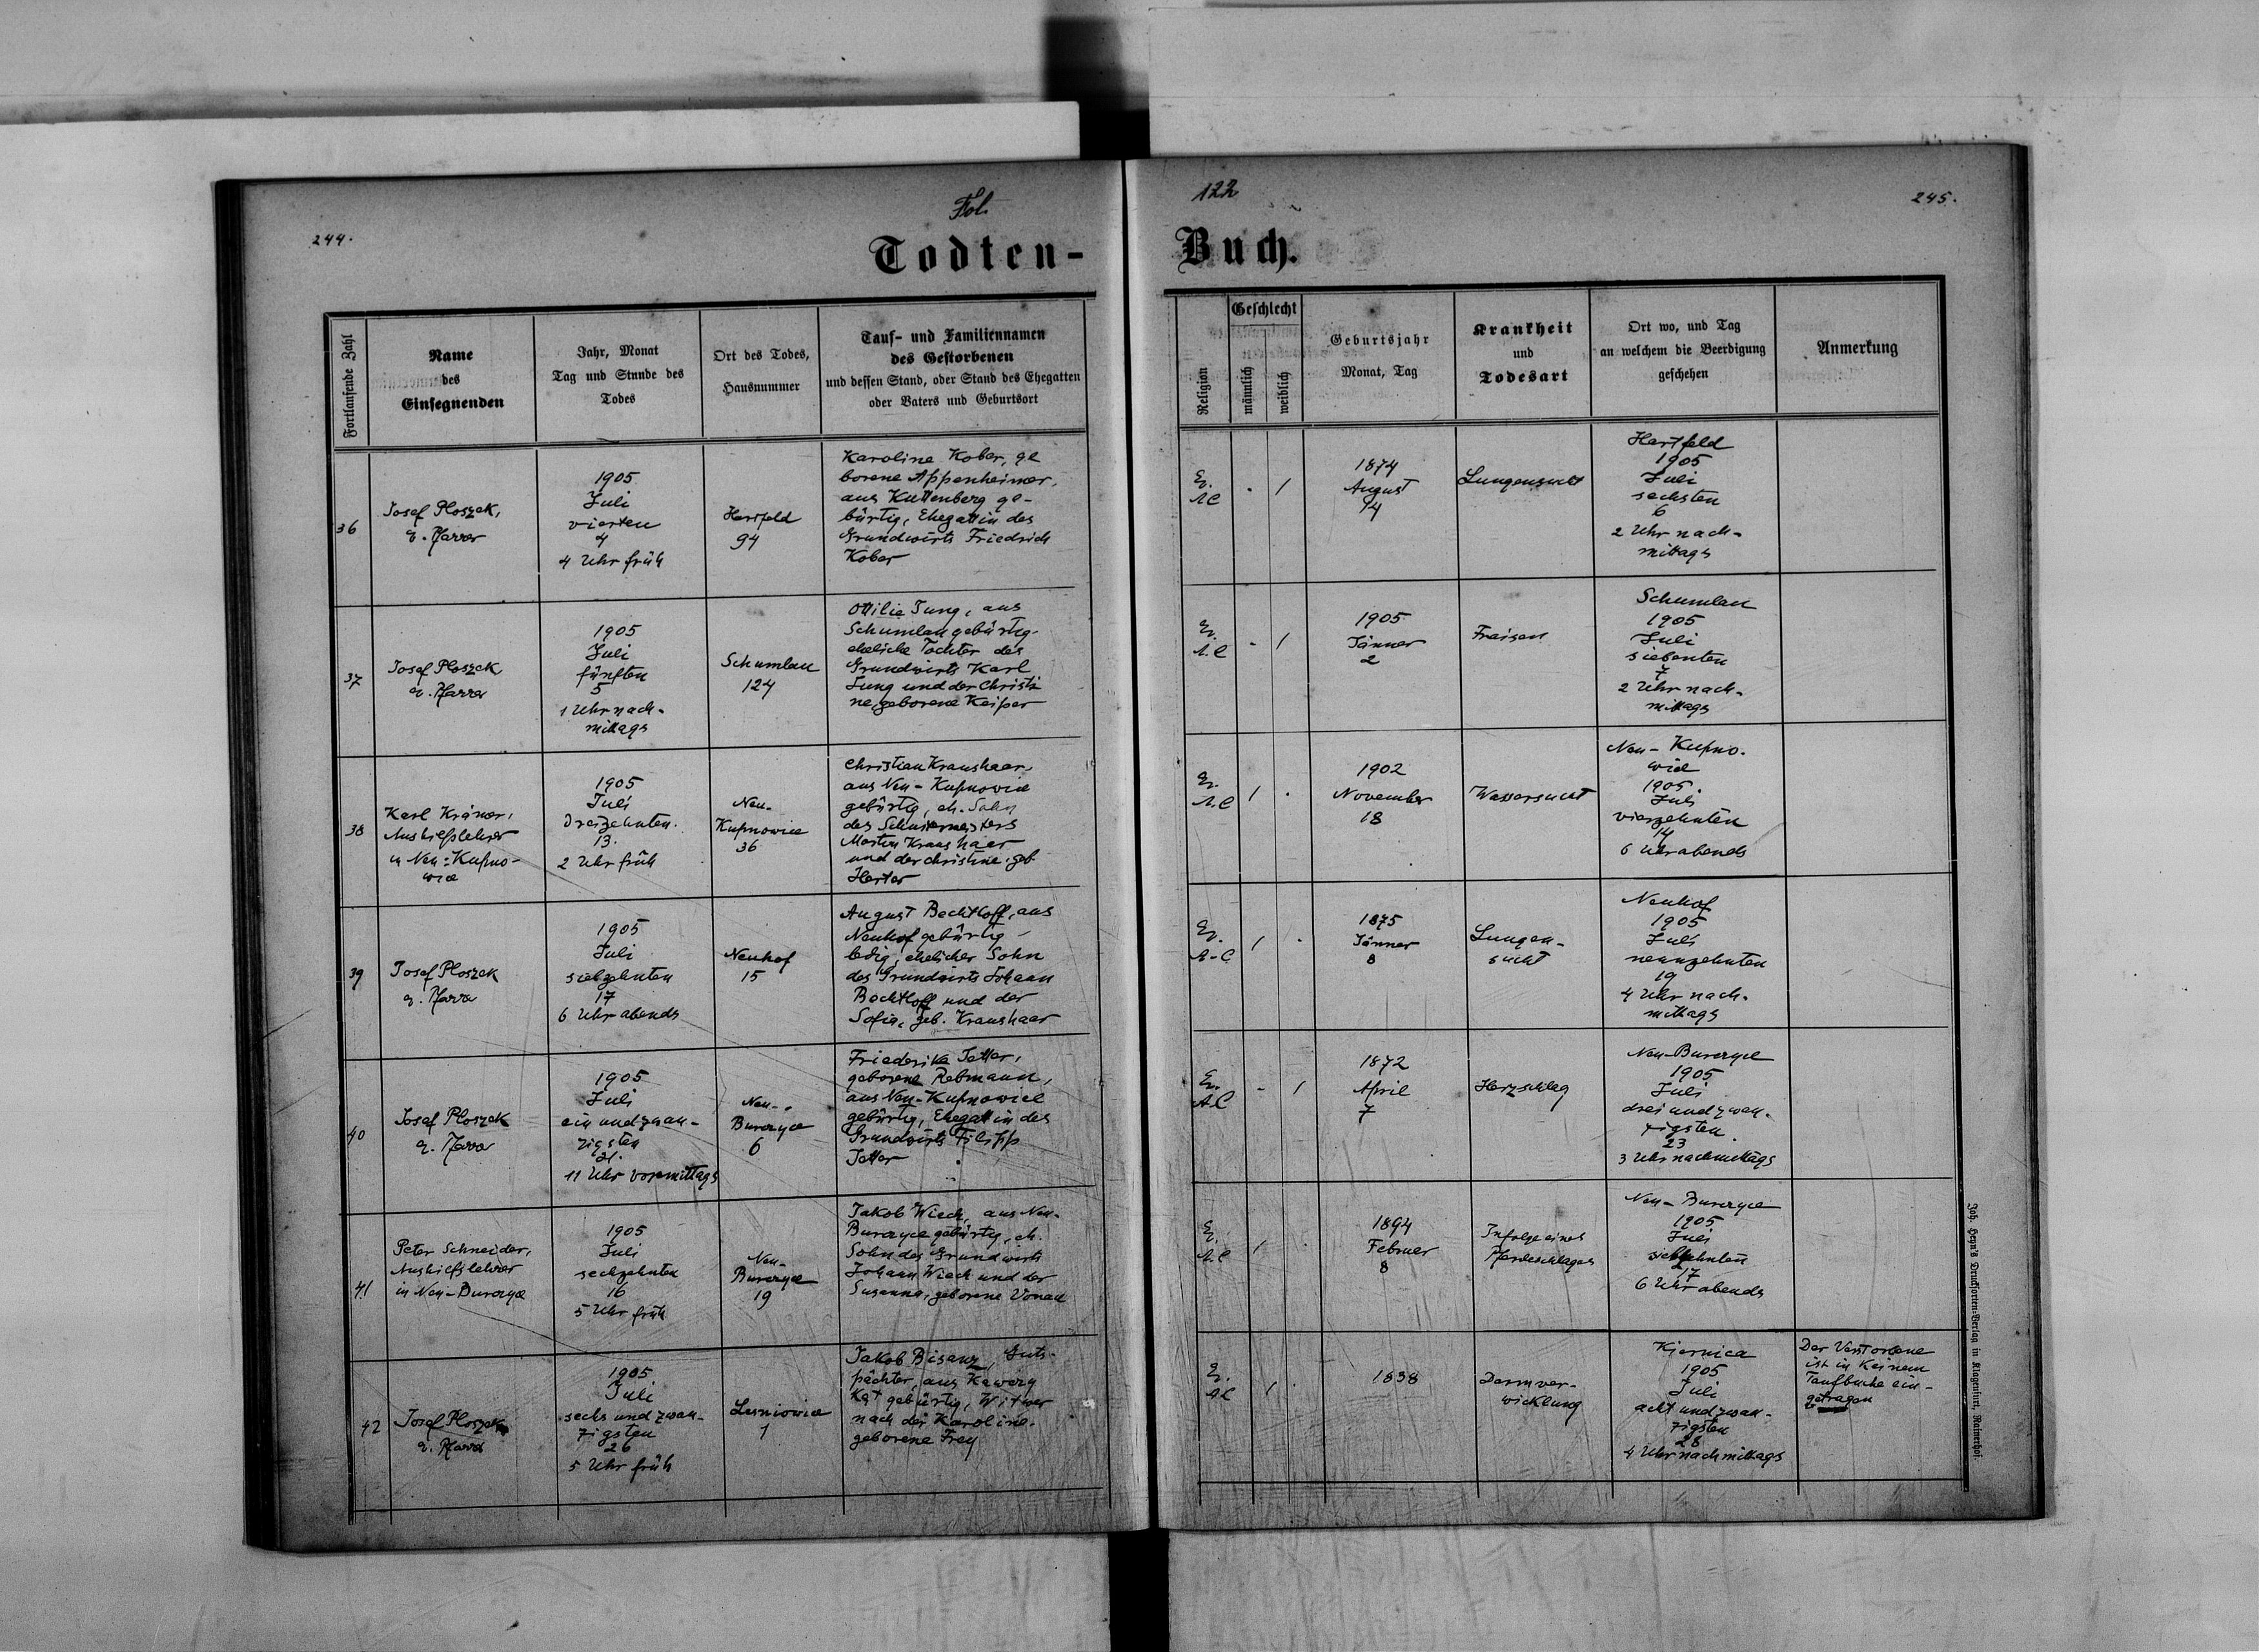 244.
Fol.
122
245.
Todten-
Buch.
Fortlaufende Zahl
Name
des
Einsegnenden
Jahr, Monat
Tag und Stunde des
Todes
Ort des Todes,
Hausnummer
Tauf- und Familiennamen
des Gestorbenen
und dessen Stand, oder Stand des Ehegatten
oder Vaters und Geburtsort
Religion
Geschlecht
männlich
weiblich
Geburtsjahr
Monat, Tag
Krankheit
und
Todesart
Ort wo, und Tag
an welchem die Beerdigung
geschehen
Anmerkung
36
Josef Ploszek,
e. Pfarrer
1905
Juli
vierten
4
4 Uhr früh
Hartfeld
94
Karoline Kober, ge
borene Appenheimer,
aus Kuttenberg ge-
bürtig, Ehegattin des
Grundwirts Friedrich
Kober
Ev.
AC
-
1
1874
August
14
Lungensucht
Hartfeld
1905
Juli
sechsten
6
2 Uhr nach-
mittags
37
Josef Ploszek
e. Pfarrer
1905
Juli
fünften
5
1 Uhr nach-
mittags
Schumlau
124
Ottilie Jung, aus
Schumlau gebürtig-
eheliche Tochter des
Grundwirts Karl
Jung und der Christi
ne, geborene Keiper
Ev.
A.C
-
1
1905
Jänner
2
Fraisen
Schumlau
1905
Juli
siebenten
7
2 Uhr nach-
mittags
38
Karl Krämer,
Aushilfslehrer
in Neu-Kupno-
wice
1905
Juli
dreizehnten.
13.
2 Uhr früh
Neu-
Kupnowice
36
Christian Kraushaar,
aus Neu-Kupnowice
gebürtig, eh. Sohn
des Schustermeisters
Martin Kraushaar
und der Christine, geb.
Harter
Ev.
A.C
1
.
1902
November
18
Wassersucht
Neu-Kupno-
wice
1905.
Juli
vierzehnten
14
6 Uhr abends
39
Josef Ploszek
e. Pfarrer
1905
Juli
siebzehnten
17
6 Uhr abends
Neuhof
15
August Bechtloff, aus
Neuhof gebürtig -
ledig, ehelicher Sohn
des Grundwirts Johann
Bechtloff und der
Sofia, geb. Kraushaar
Ev.
A-C
1
.
1875
Jänner
8
Lungen-
sucht
Neuhof
1905
Juli
neunzehnten
19
4 Uhr nach-
mittags
40
Josef Ploszek
e. Pfarrer
1905
Juli
ein und zwan-
zigsten
21.
11 Uhr vormittags
Neu-
Burczyce
6
Friederike Jetter,
geborene Rebmann,
aus Neu-Kupnowice
gebürtig, Ehegattin des
Grundwirts Filipp
Jetter
Ev.
A.C
-
1
1872
April
7
Herzschlag
Neu-Burczyce
1905
Juli
drei und zwan-
zigsten
23
3 Uhr nachmittags
41
Peter Schneider,
Aushilfslehrer
in Neu-Burczyce
1905
Juli
sechzehnten
16
5 Uhr früh
Neu-
Burczyce
19
Jakob Wiech, aus Neu-
Burczyce gebürtig, eh.
Sohn des Grundwirts
Johann Wiech und der
Susanna, geborene Vonau
Ev.
A.C
1
.
1894
Februer
8
Infolge eines
Pferdeschlages
Neu-Burczyce
1905
Juli
siebzehnten
17
6 Uhr abends
42
Josef Ploszek
e. Pfarrer
1905
Juli
sechs und zwan-
zigsten
26
5 Uhr früh
Lesniowice
1
Jakob Bisanz, Guts-
pächter, aus Kawczy
Kąt gebürtig, Witwer
nach der Karoline,
geborene Frey
Ev.
AC
1
.
1838
Darmver-
wicklung
Kiernica
1905
Juli
acht und zwan-
zigsten
28
4 Uhr nachmittags
Der Verstorbene
ist in keinem
Taufbuche ein-
getragen
Joh. Heyn's Drucksorten-Verlag in Klagenfurt, Rainerhof.